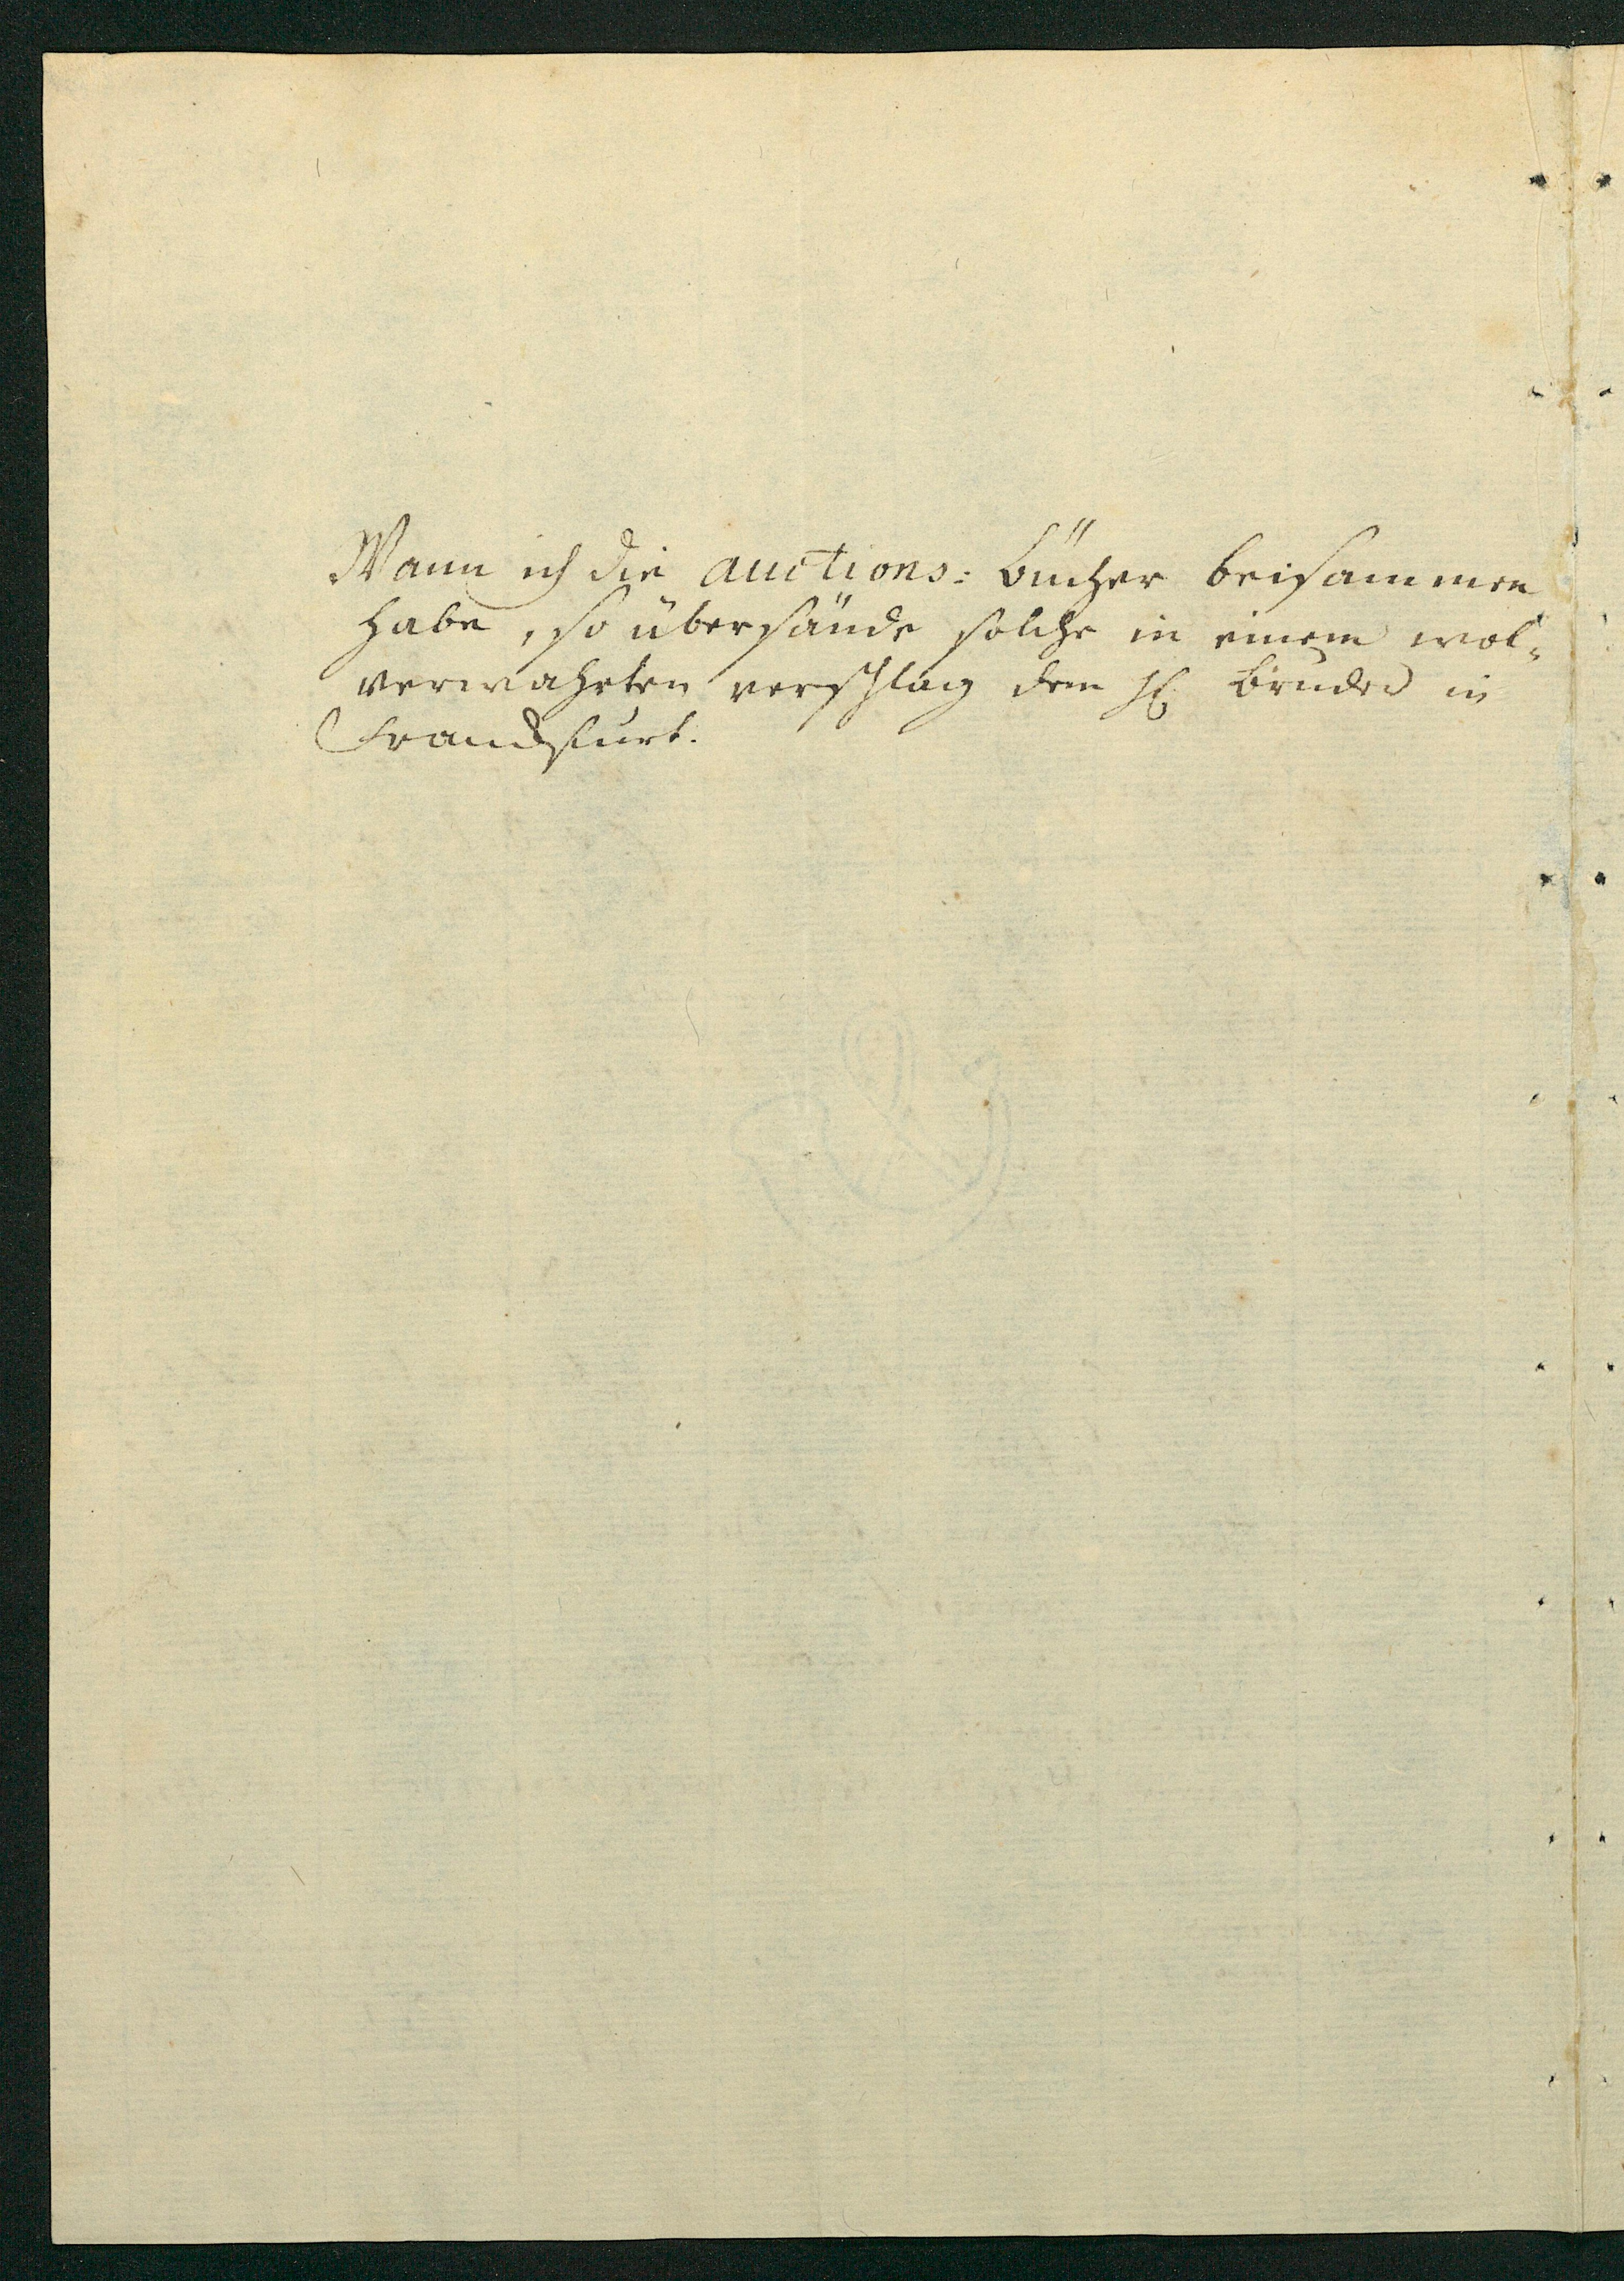 Wann ich die auctions: bücher beisammen
habe, so übersände solche in einem wol-
verwahrten verschlag dem H. bruder in
Franckfurt.